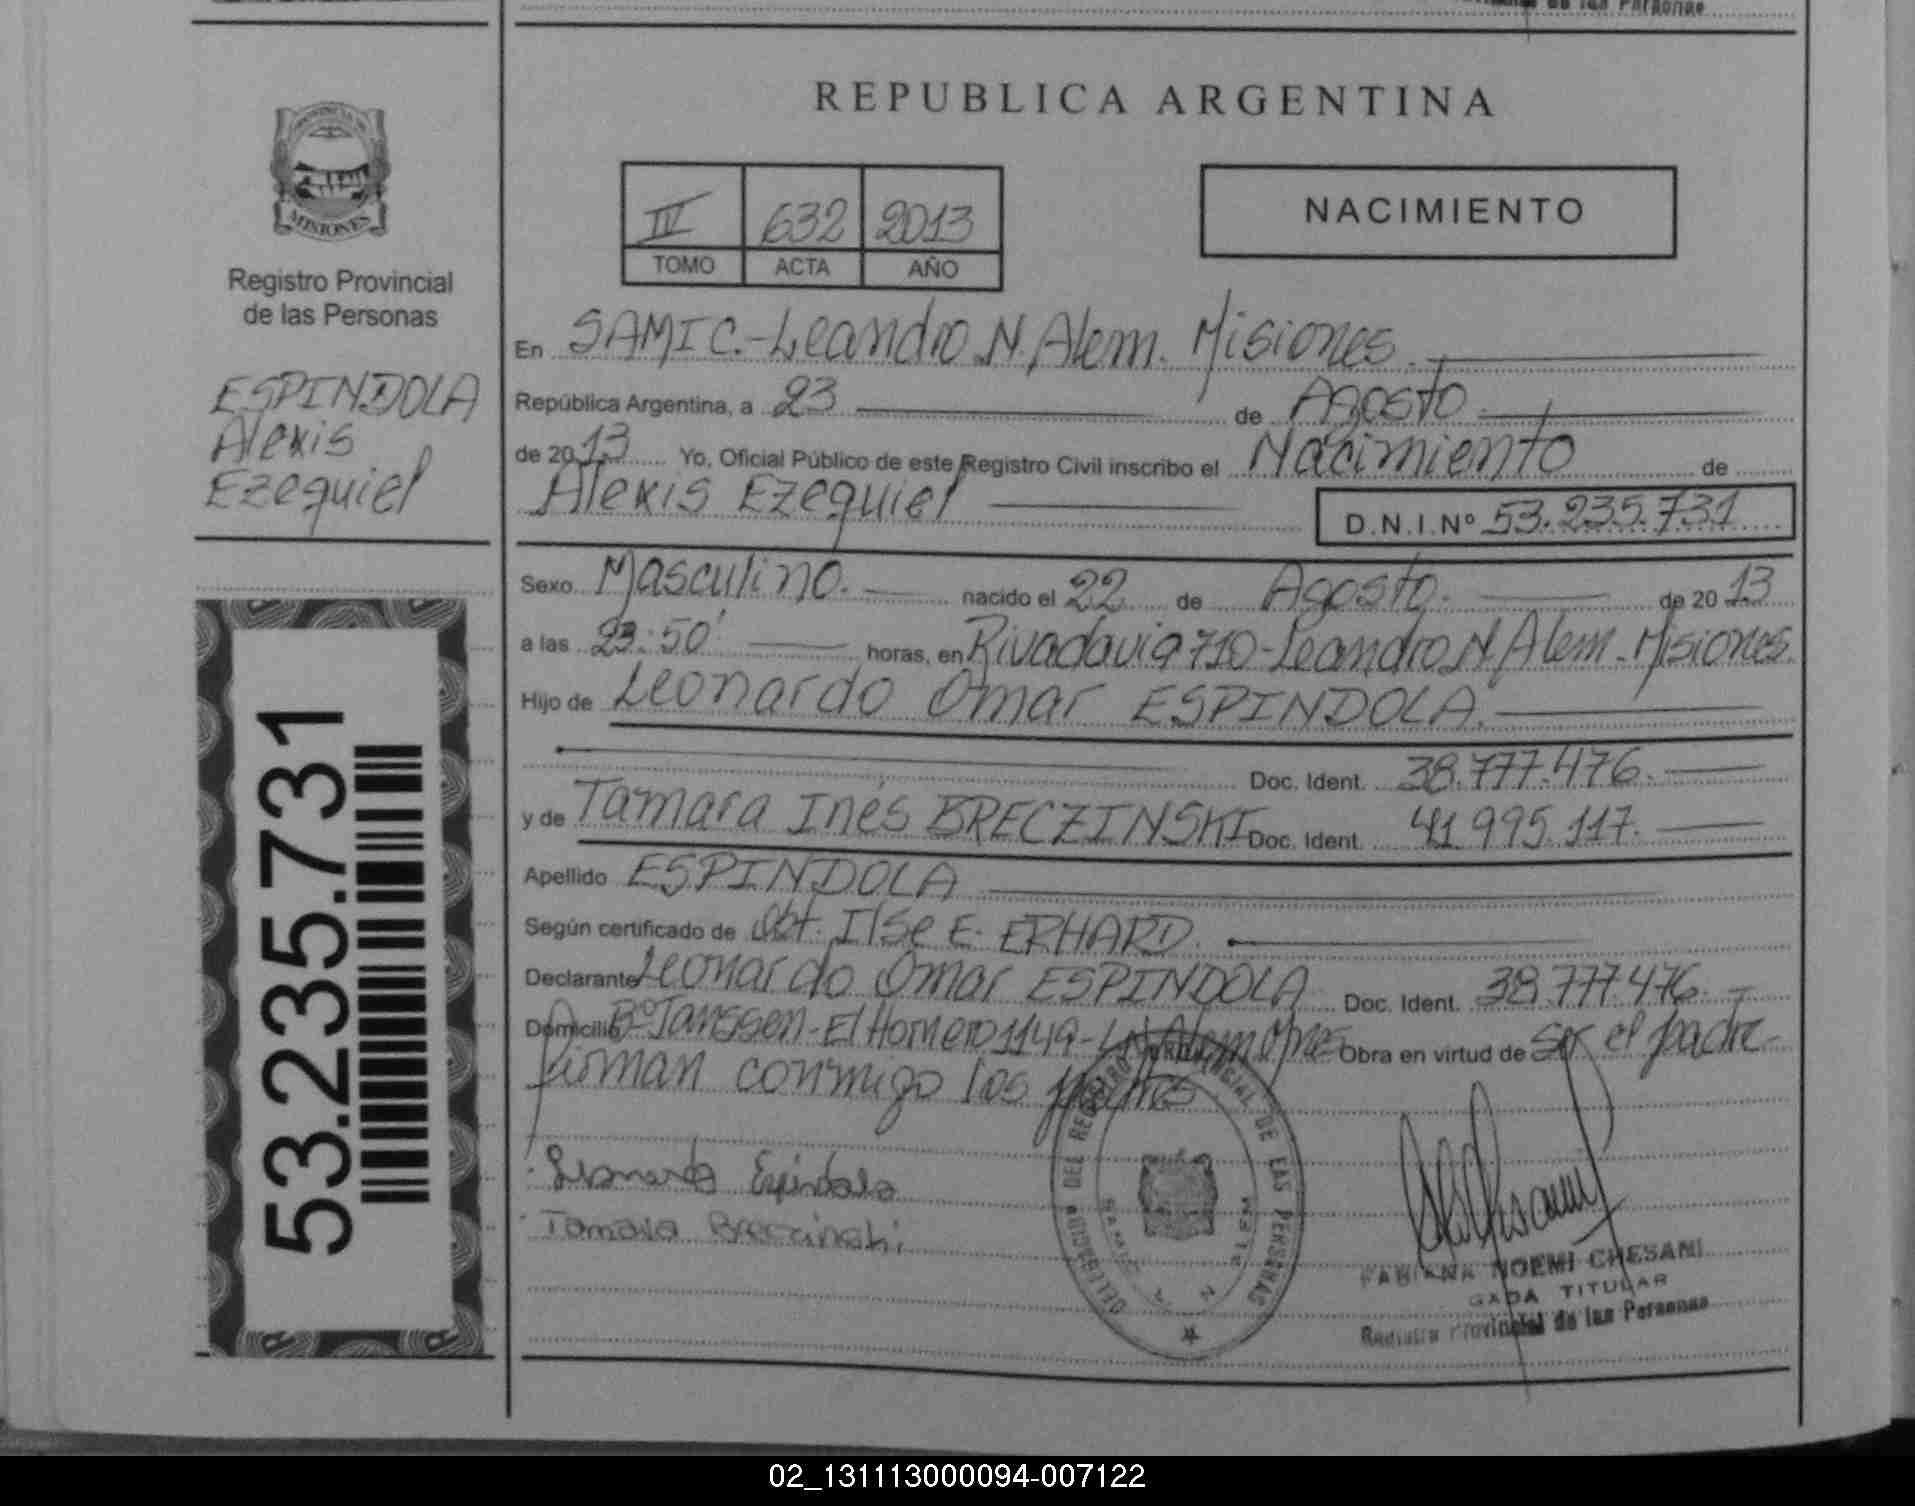 de las Personas
REPUBLICA ARGENTINA
MISIONES
Registro Provincial
de las Personas
ESPINDOLA
Alexis
Ezequiel
53.235.731
IV 632 2013
TOMO ACTA AÑO
NACIMIENTO
En SAMIC.-Leandro N. Alem. Misiones.
República Argentina, a 23 de Agosto
de 2013 Yo, Oficial Público de este Registro Civil inscribo el Nacimiento de
Alexis Ezequiel D.N.I.Nº 53.235.731
Sexo Masculino. nacido el 22 de Agosto. de 2013
a las 23:50' horas, en Rivadavia 710-Leandro N. Alem. Misiones.
Hijo de Leonardo Omar ESPINDOLA.
Doc. Ident. 38.777.476.
y de Tamara Inés BRECZINSKI Doc. Ident. 41.995.117.
Apellido ESPINDOLA
Según certificado de Obt. Ilse E. ERHARD.
Declarante Leonardo Omar ESPINDOLA Doc. Ident. 38.777.476.-
Domicilio Bº Janssen-El Hornero 1149-L.N.Alem Mnes Obra en virtud de ser el padre-
firman conmigo los padres
Leonardo Espindola
Tamara Breczinski
DELEGACION DEL REGISTRO PROVINCIAL DE LAS PERSONAS
FABIANA NOEMI CHESANI
TITULAR
Registro Provincial de las Personas
02_131113000094-007122